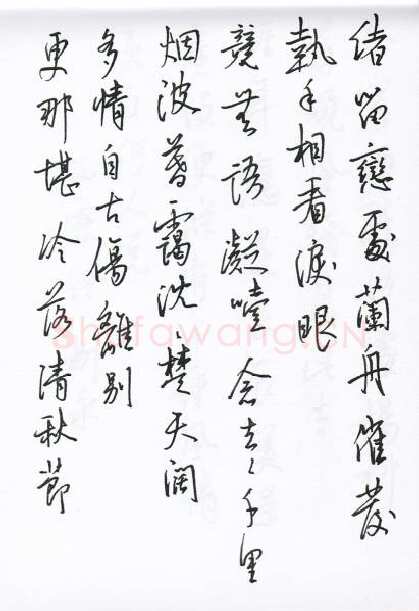 緒留戀處蘭舟催發
執手相看淚眼
競無語凝噎念去々千里
烟波暮靄沈々楚天闊
多情自古傷離別
更那堪冷落清秋節
shufawang.CN